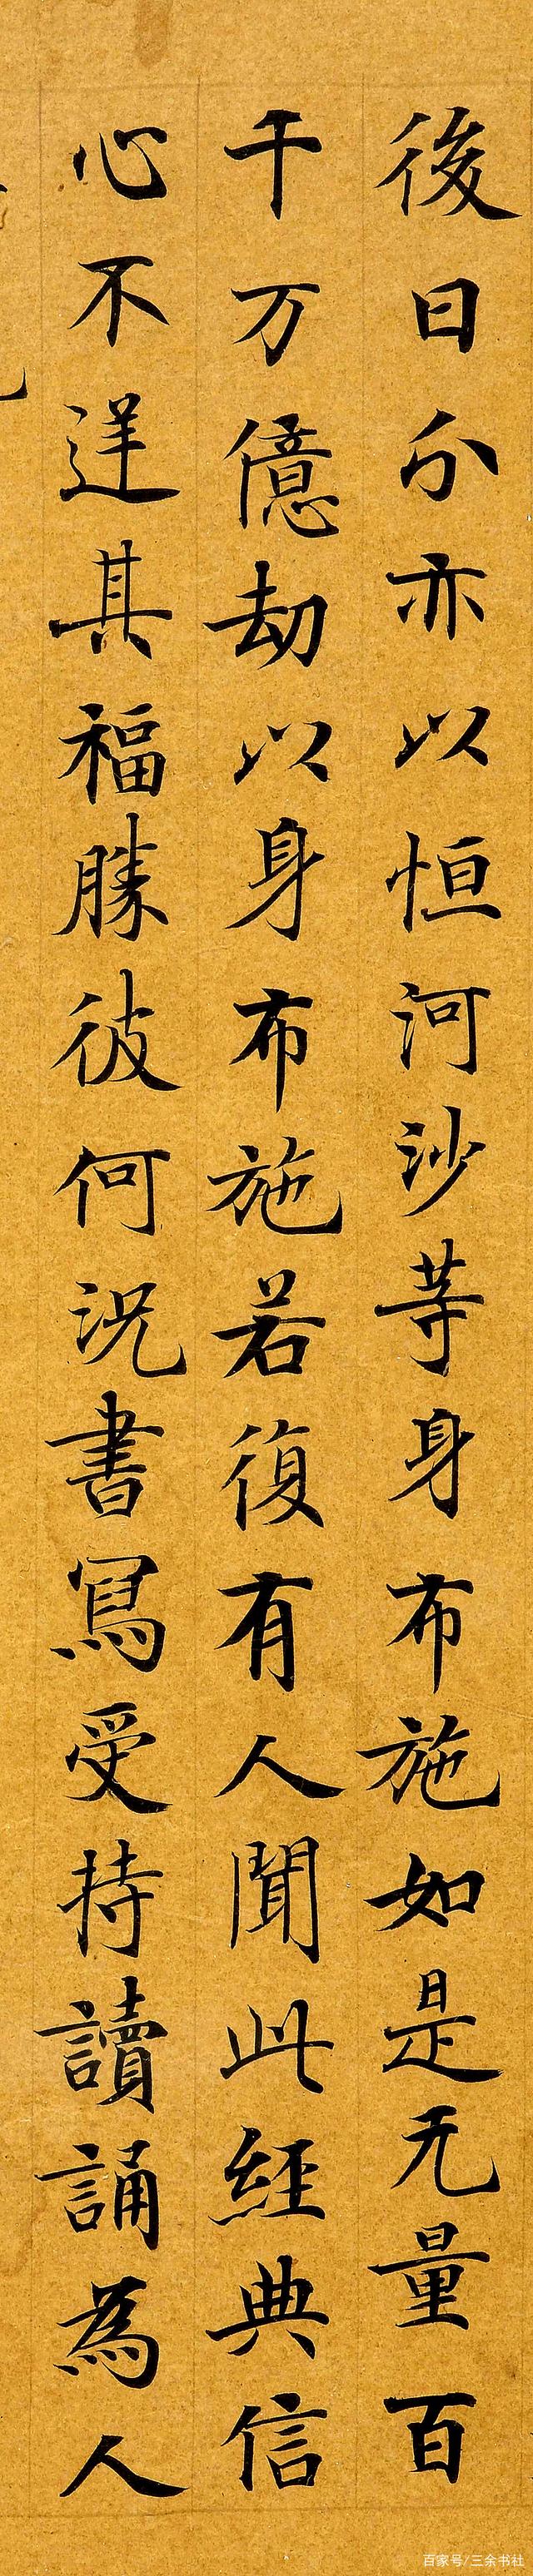 後日分亦以恒河沙等身布施如是无量百
千万億劫以身布施若復有人聞此經典信
心不逆其福勝彼何況書寫受持讀誦為人
百家号/三余书社